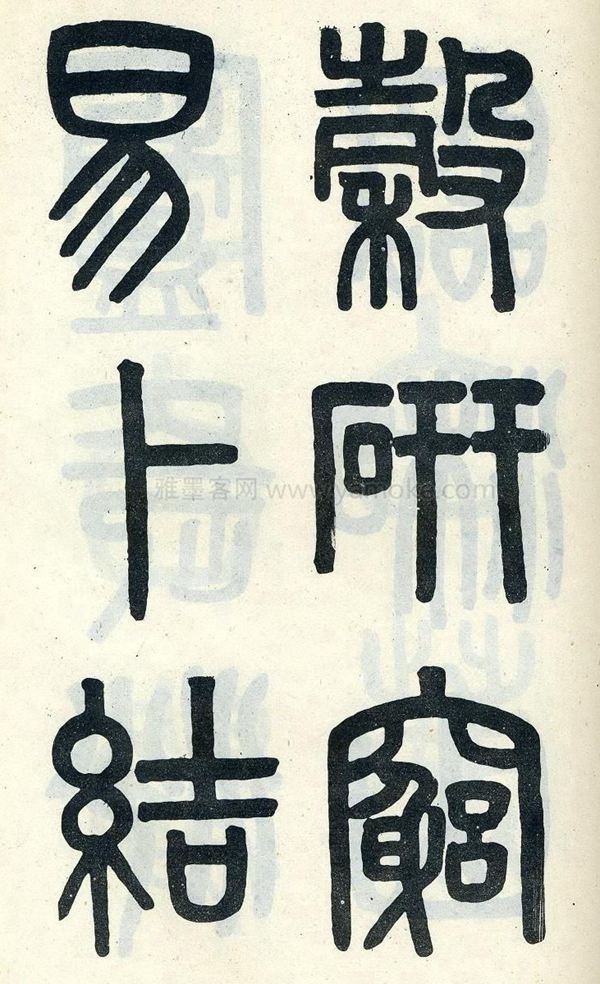 穀研窮
易卜結
雅墨客网 www.yamoke.com